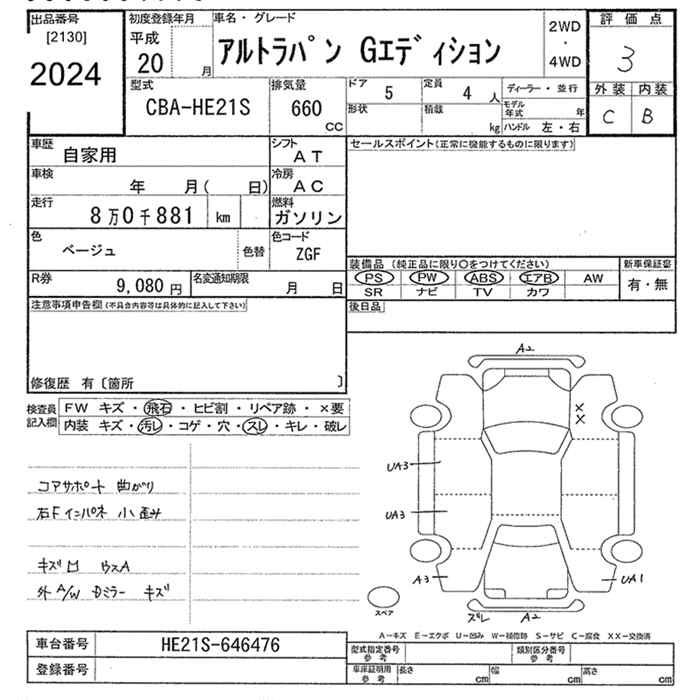 出品番号
[2130]
2024
初度登録年月
平成
20 月
車名・グレード
アルトラパン Gエディション
2WD
・
4WD
評価点
3
外装 内装
C B
型式
CBA-HE21S
排気量
660
CC
ドア 5
定員 4 人
ディーラー・並行
形状
積載 kg
モデル年式 年
ハンドル 左・右
車歴
自家用
シフト
AT
車検
年 月( 日)
冷房
AC
走行
8万0千881 km
燃料
ガソリン
色
ベージュ
色替
色コード
ZGF
R券
9,080 円
名変通知期限
月 日
セールスポイント(正常に機能するものに限ります)
装備品 (純正品に限り○をつけてください)
新車保証書
PS PW ABS エアB AW
有・無
SR ナビ TV カワ
後日品
注意事項申告欄(不具合内容等は具体的に記入して下さい)
修復歴 有〔箇所 〕
検査員
記入欄
FW キズ・飛石・ヒビ割・リペア跡・×要
内装 キズ・汚レ・コゲ・穴・スレ・キレ・破レ
コアサポート 曲がり
右Fインパネ 小歪み
キズ
外A/W Dミラー キズ
A2
×
×
UA3
UA3
A3
UA1
ズレ
A2
スペア
A−キズ E−エクボ U−凹み W−補修跡 S−サビ C−腐食 XX−交換済
車台番号
HE21S-646476
登録番号
型式指定番号
参考
類別区分番号
参考
車庫証明用
参考
長さ cm
幅 cm
高さ cm